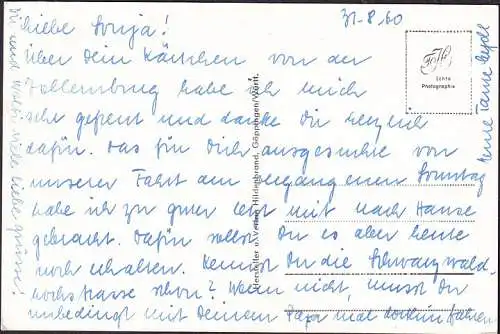 31.8.60
Liebe Sonja!
Über Dein Kärtchen von der
Zollernburg habe ich mich
sehr gefreut und danke Dir herzlich
dafür. Das für Dich ausgesuchte von
unserer Fahrt am vergangenen Sonntag
habe ich zu guter letzt mit nach Hause
gebracht. Dafür sollst Du es aber heute
noch erhalten. Kennst Du die Schwarzwald
hochstrasse schon? Wenn nicht, musst Du
unbedingt mit Deinem Papa mal dorthin fahren.
Dir und viele liebe Grüsse!
Deine Tante
Echte
Photographie
Hersteller u. Verlag Hildenbrand, Göppingen/Württ.